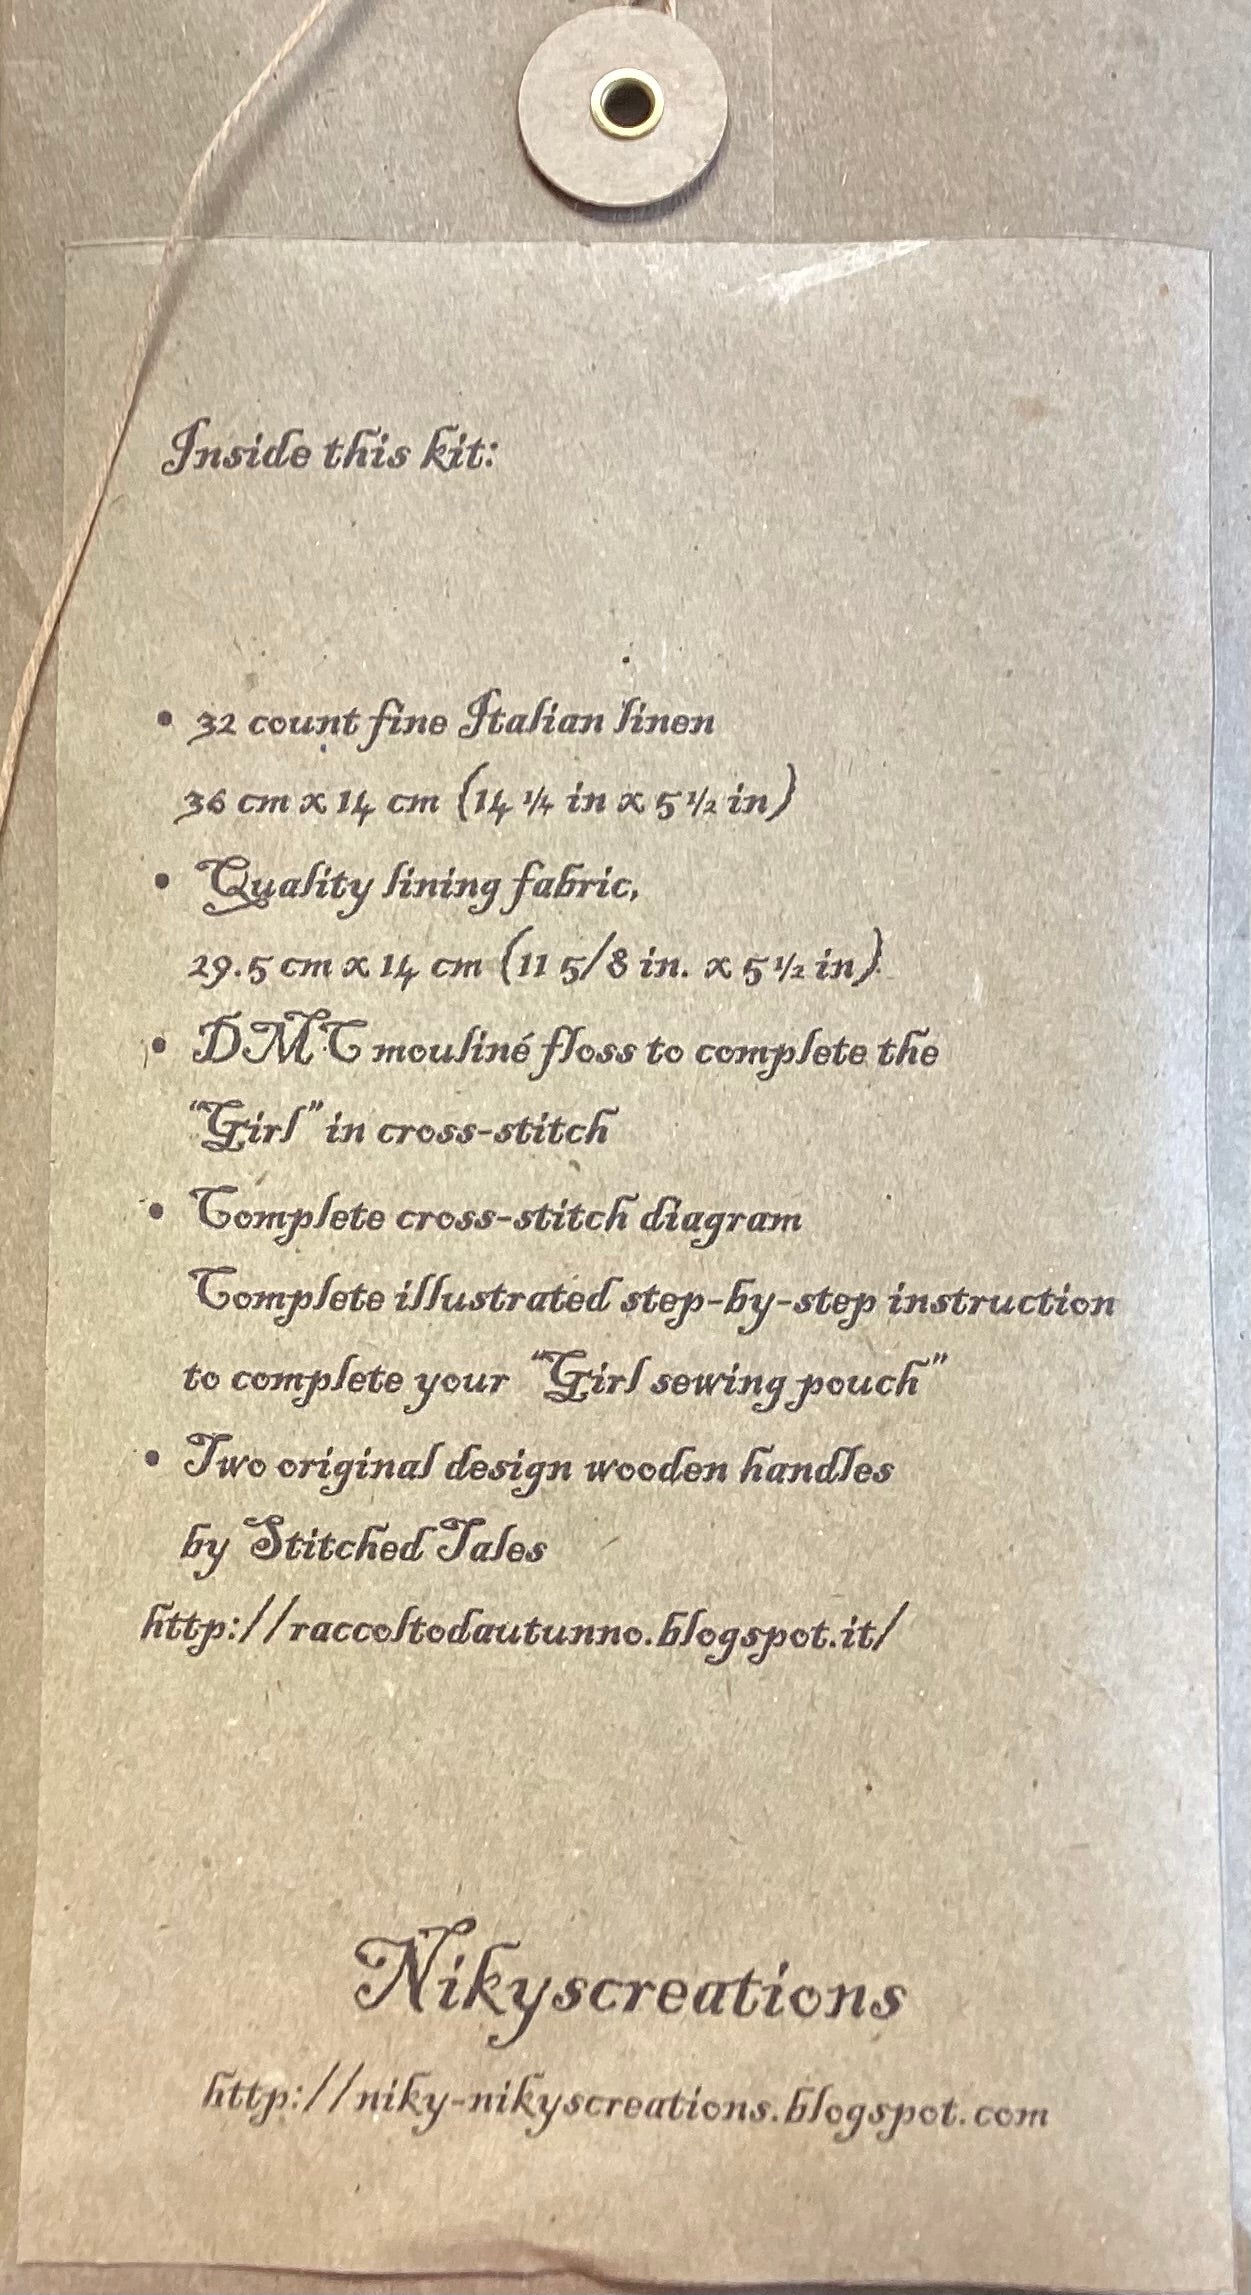 Inside this kit:
• 32 count fine Italian linen
36 cm x 14 cm (14 ¼ in x 5 ½ in)
• Quality lining fabric,
29.5 cm x 14 cm (11 5/8 in. x 5 ½ in)
• DMC mouliné floss to complete the
“Girl” in cross-stitch
• Complete cross-stitch diagram
Complete illustrated step-by-step instruction
to complete your “Girl sewing pouch”
• Two original design wooden handles
by Stitched Tales
http://raccoltodautunno.blogspot.it/
Nikyscreations
http://niky-nikyscreations.blogspot.com